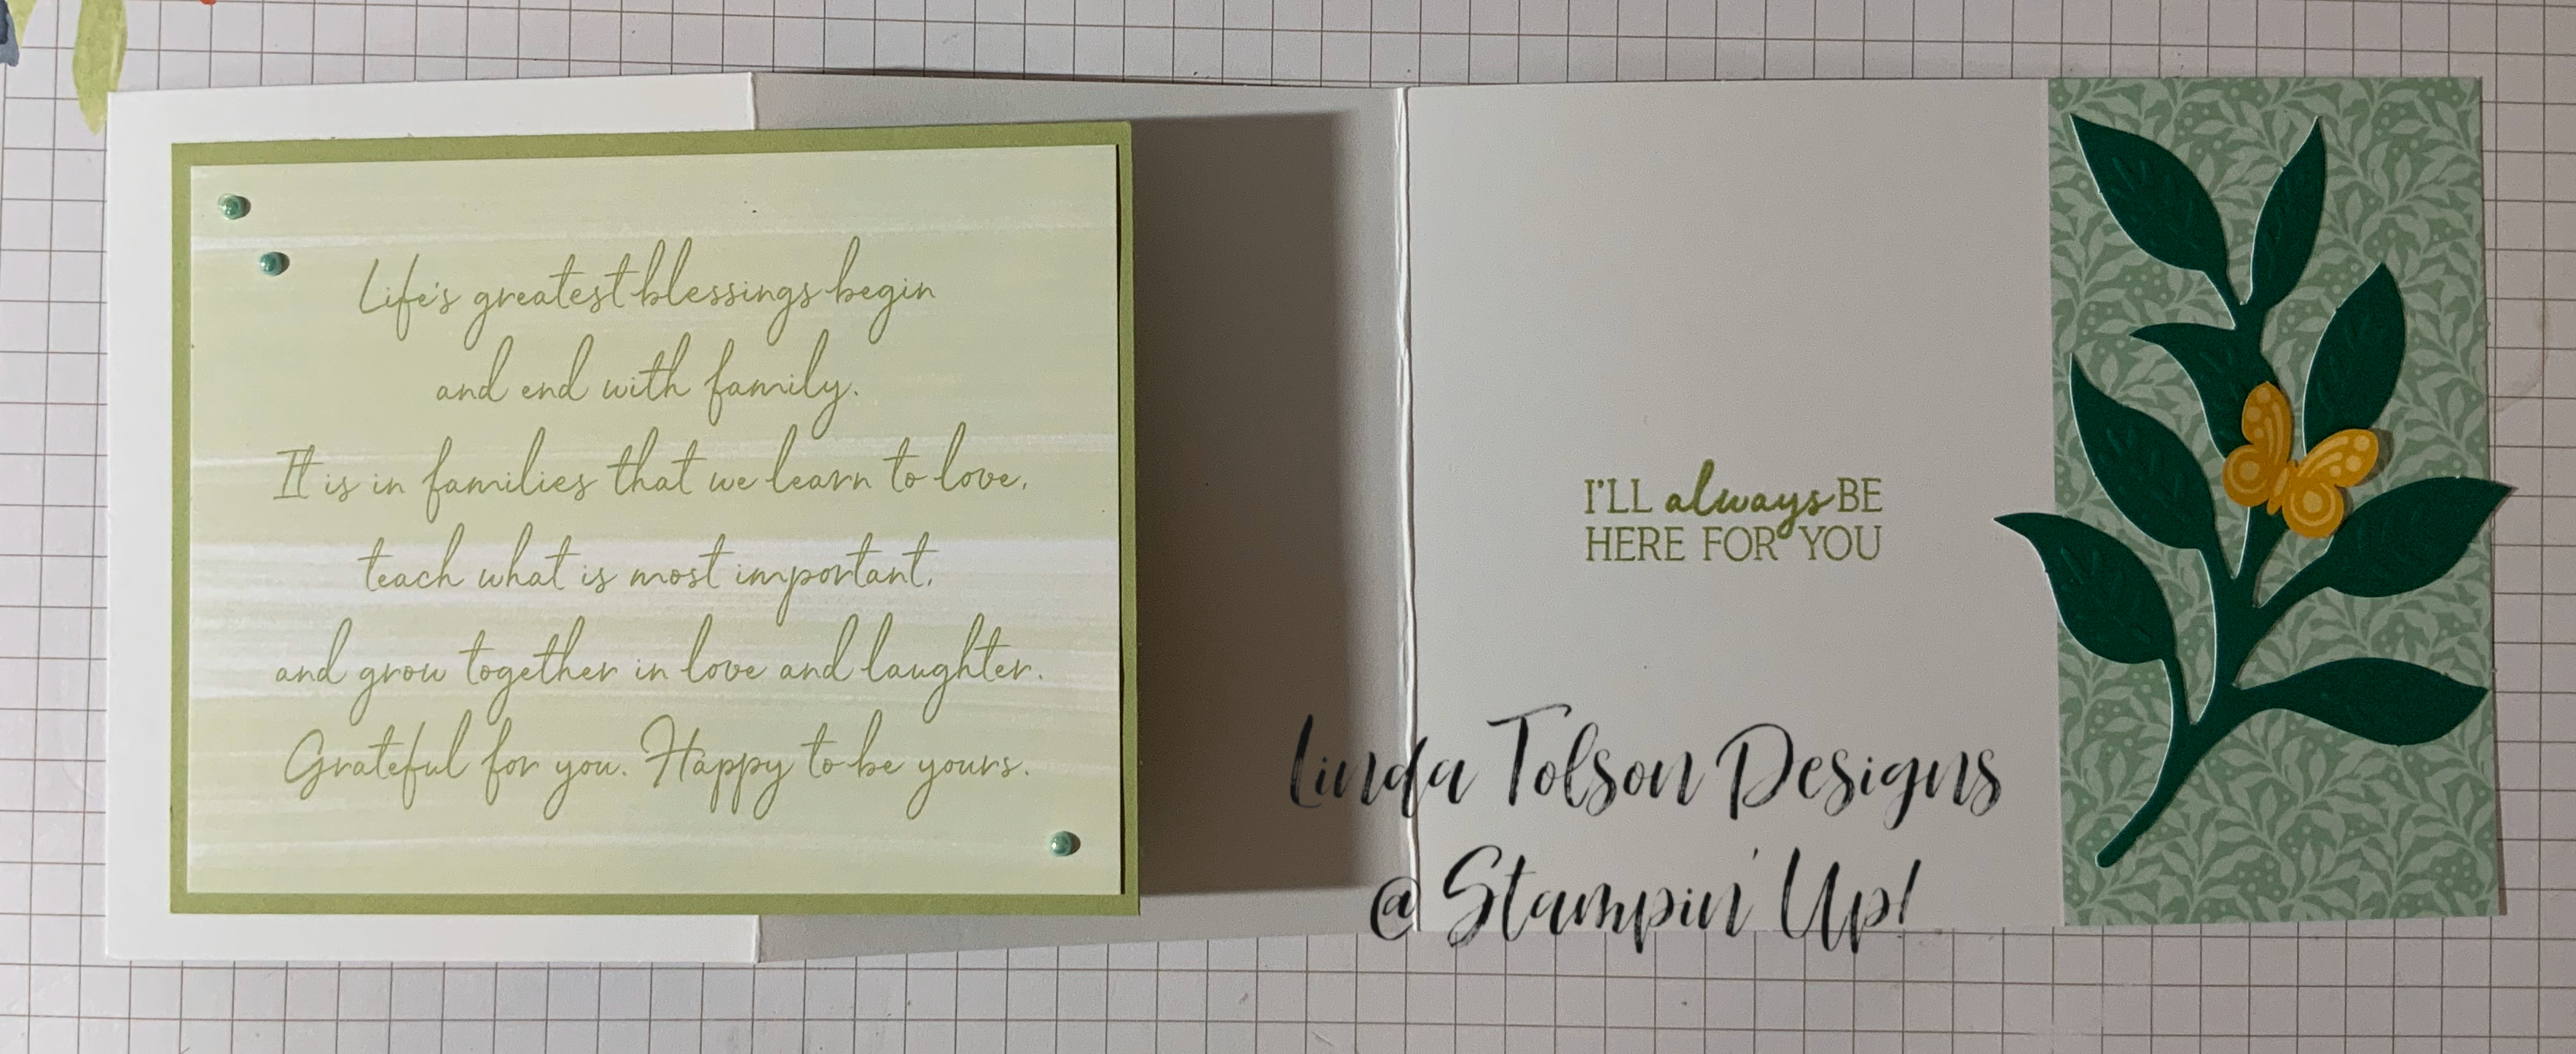 Life's greatest blessings begin
and end with family.
It is in families that we learn to love,
teach what is most important,
and grow together in love and laughter.
Grateful for you. Happy to be yours.
I'LL always BE
HERE FOR YOU
Linda Tolson Designs
@ Stampin' Up!